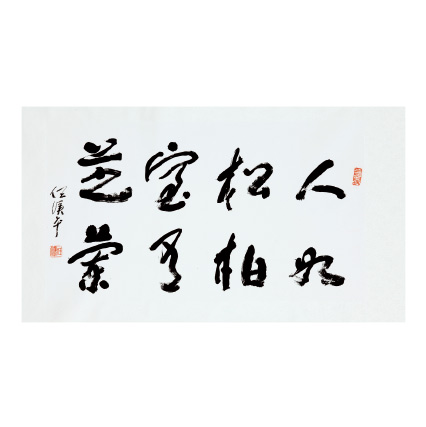 人如
松柏
室有
芝蘭
任漢平